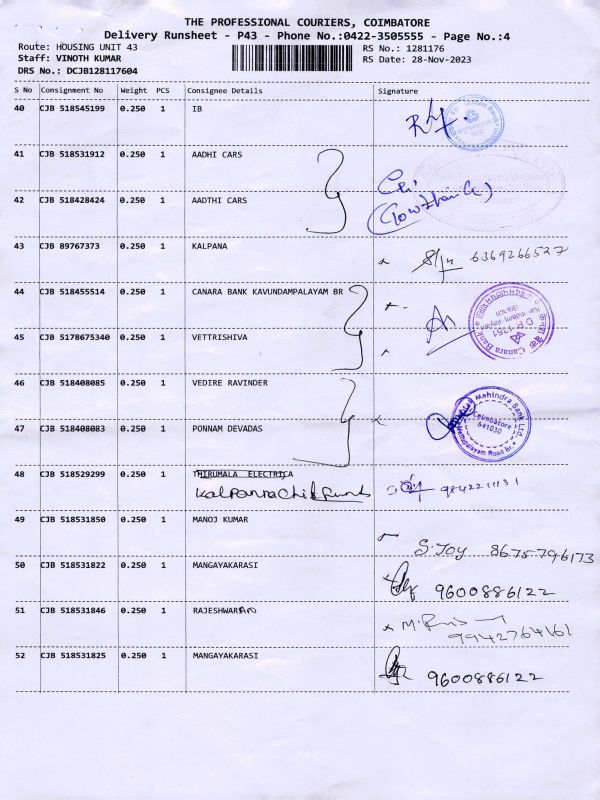 THE PROFESSIONAL COURIERS, COIMBATORE
Delivery Runsheet - P43 - Phone No.:0422-3505555 - Page No.:4
Route: HOUSING UNIT 43 RS No.: 1281176
Staff: VINOTH KUMAR RS Date: 28-Nov-2023
DRS No.: DCJB128117604
S No Consignment No Weight PCS Consignee Details Signature
40 CJB 518545199 0.250 1 IB
41 CJB 518531912 0.250 1 AADHI CARS
42 CJB 518428424 0.250 1 AADTHI CARS
43 CJB 89767373 0.250 1 KALPANA 6369266527
44 CJB 518455514 0.250 1 CANARA BANK KAVUNDAMPALAYAM BR
Canara Bank
D.P. 1251
Branch
45 CJB 5178675340 0.250 1 VETTRISHIVA
46 CJB 518408085 0.250 1 VEDIRE RAVINDER
Mahindra Bank Ltd.
Coimbatore
641030
47 CJB 518408083 0.250 1 PONNAM DEVADAS
48 CJB 518529299 0.250 1 THIRUMALA ELECTRICA
Kalpanna Chit Funds
49 CJB 518531850 0.250 1 MANOJ KUMAR
S. Joy 8675796173
50 CJB 518531822 0.250 1 MANGAYAKARASI 9600886122
51 CJB 518531846 0.250 1 RAJESHWARAN
9942764161
52 CJB 518531825 0.250 1 MANGAYAKARASI 9600886122